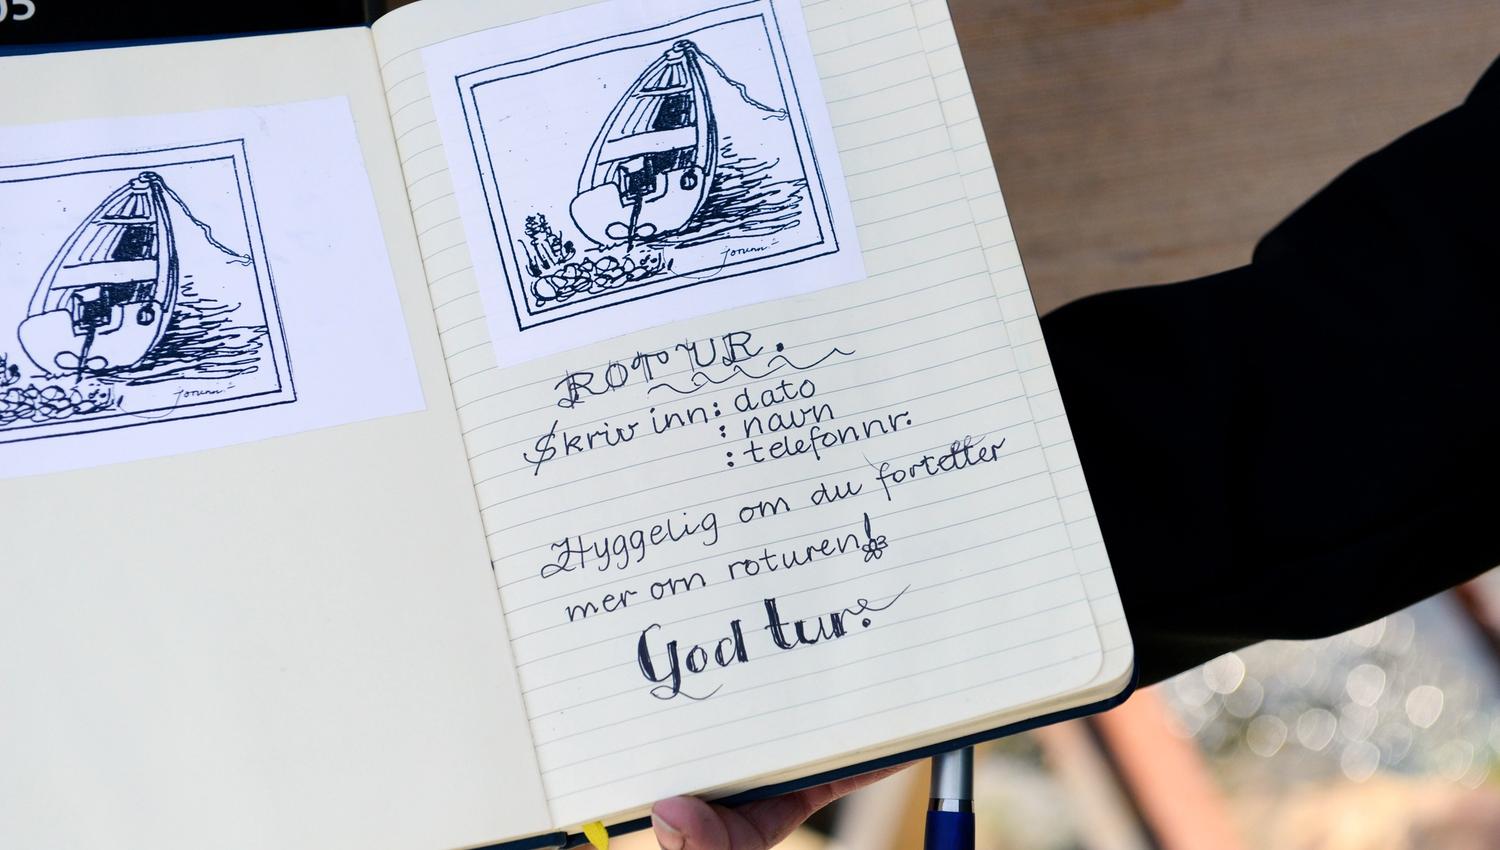 05
Jorunn
Jorunn
ROTUR.
Skriv inn: dato
: navn
: telefonnr.
Hyggelig om du forteller
mer om roturen!
God tur.